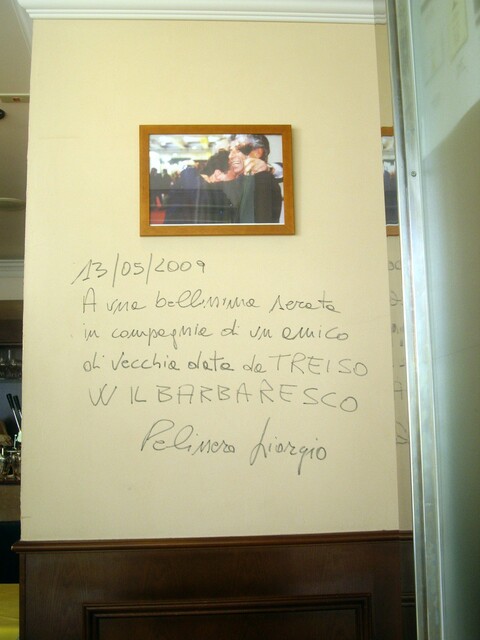 13/05/2009
A una bellissima serata
in compagnia di un amico
di vecchia data da TREISO
W IL BARBARESCO
Pelissero Giorgio